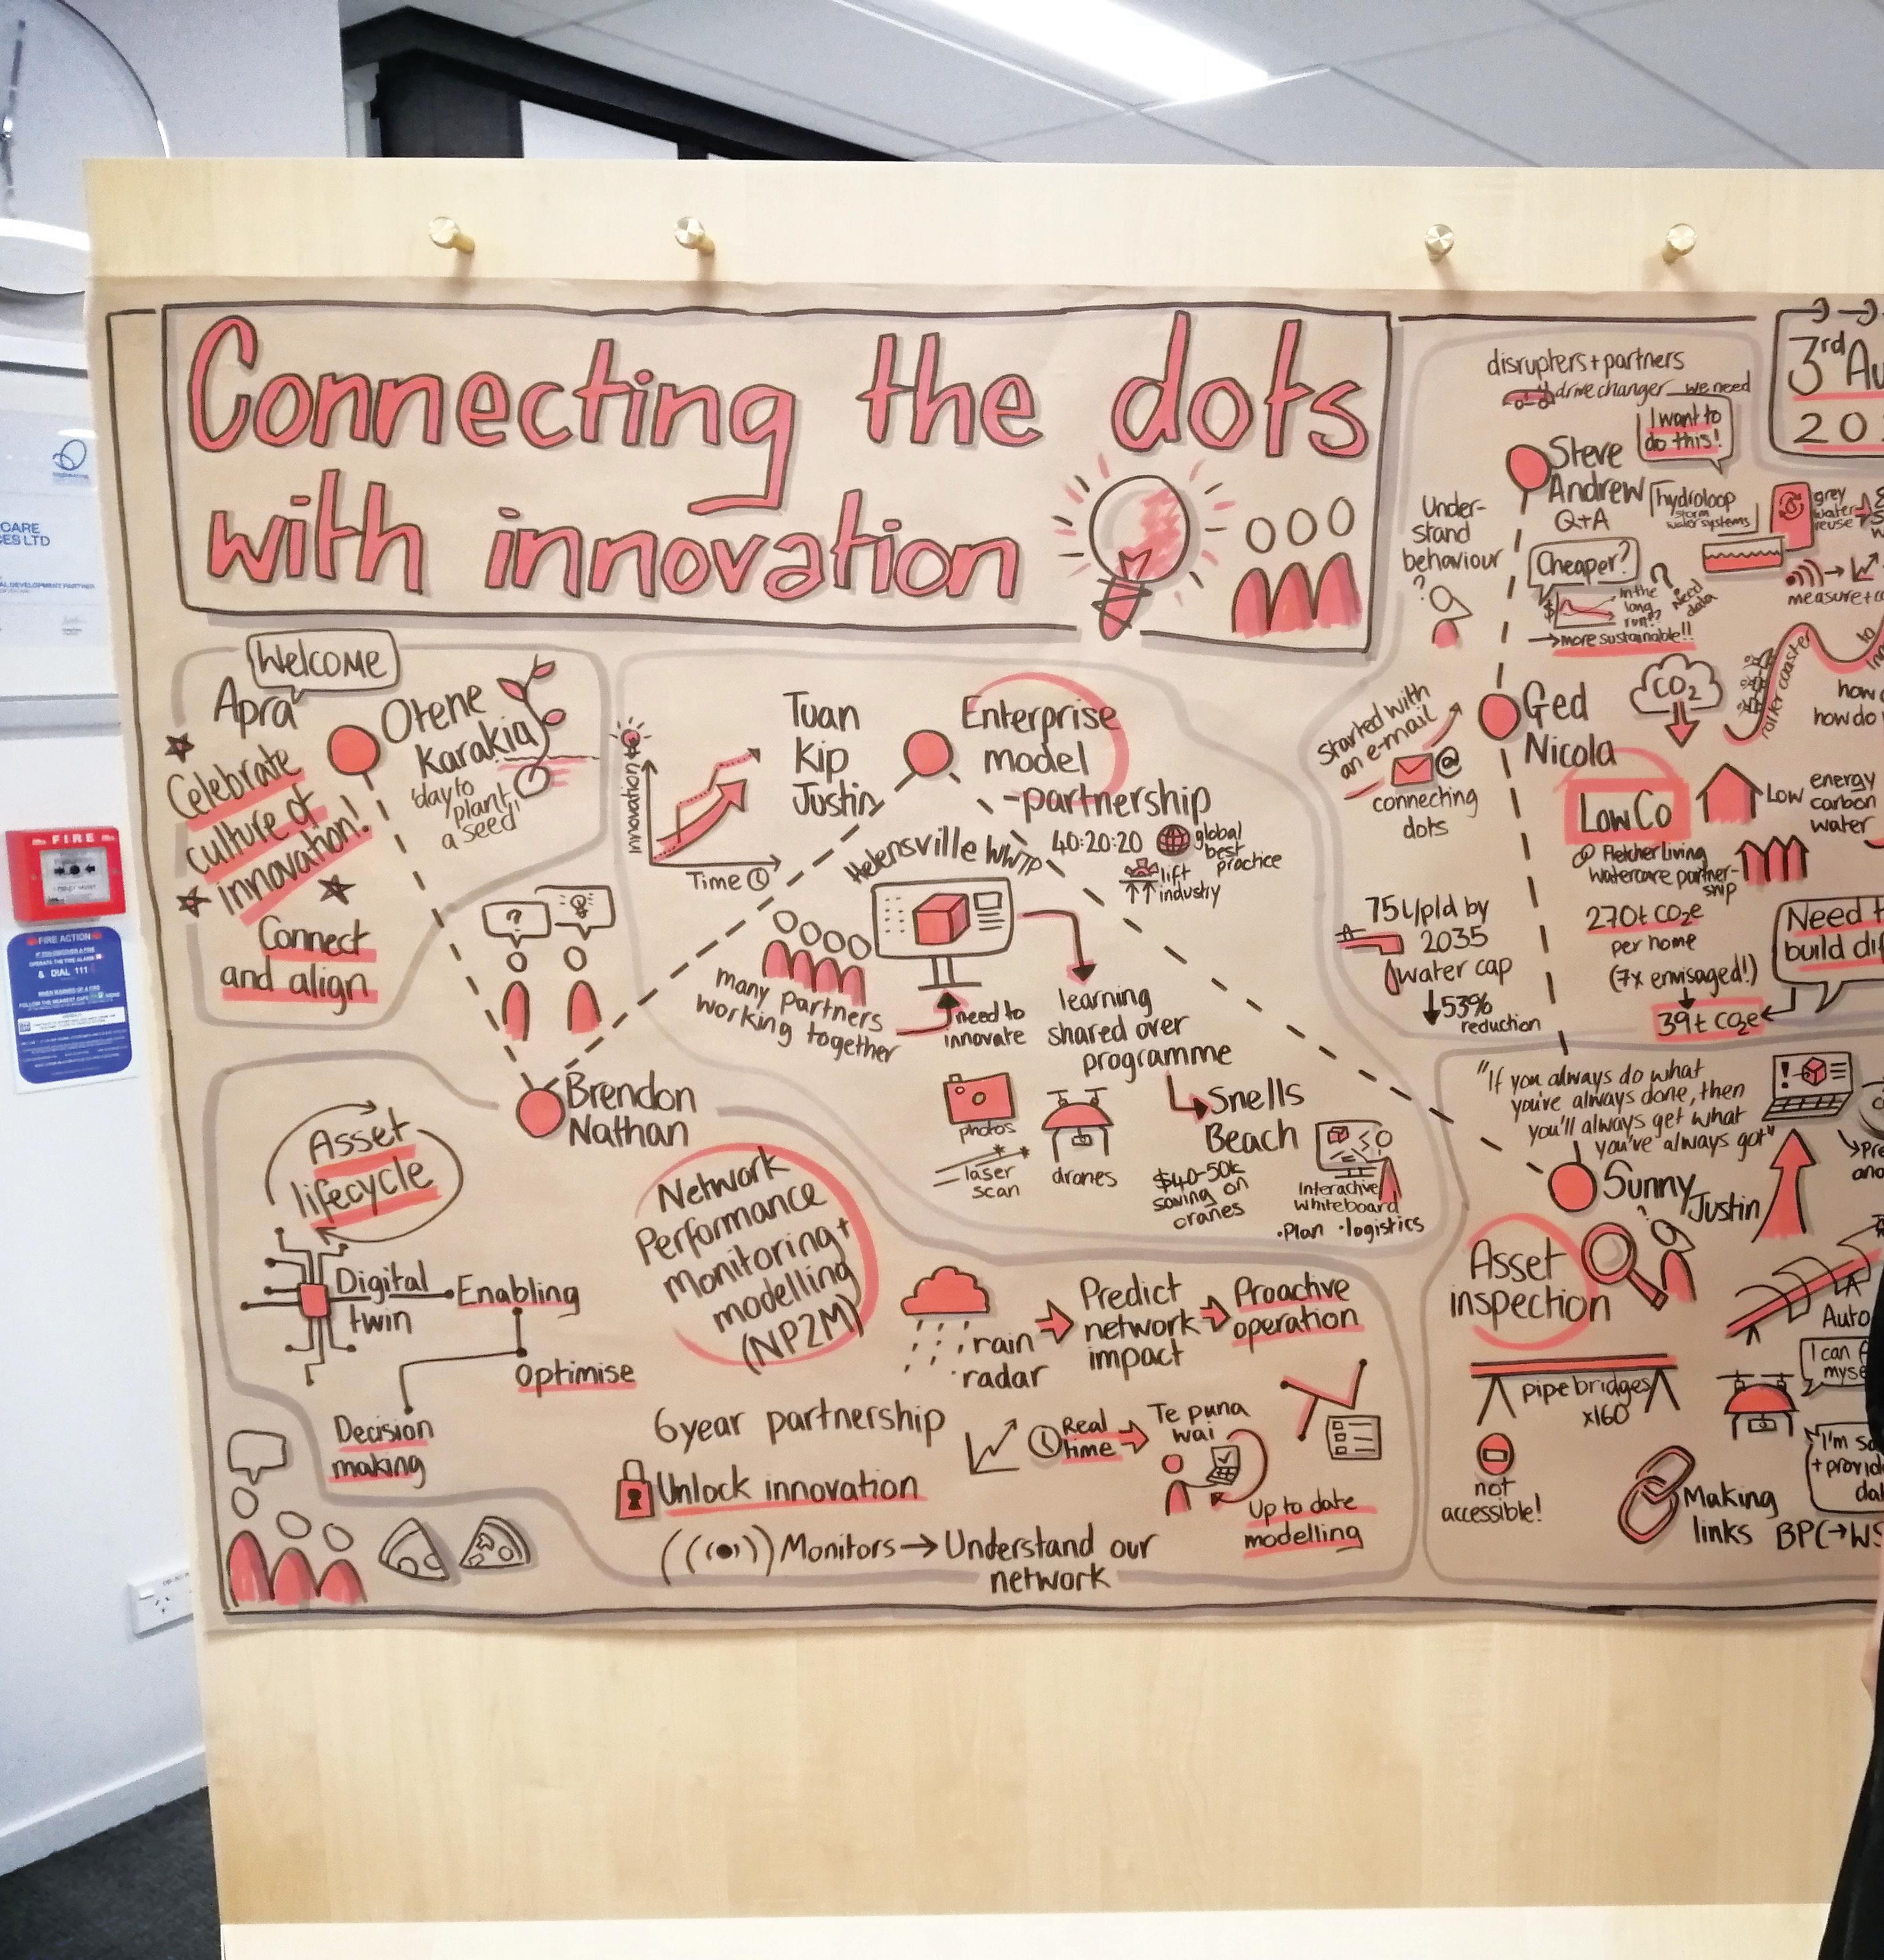 Connecting the dots
with innovation
Welcome
Apra
Otene
Karakia
'day to
plant
a seed'
Celebrate
culture of
innovation!
Connect
and align
?
innovation
Time
Tuan
Kip
Justin
Enterprise
model
-partnership
40:20:20
global
best
practice
lift
industry
Helensville WWTP
many partners
working together
need to
innovate
learning
shared over
programme
photos
laser
scan
drones
Snells
Beach
$40-50k
saving on
cranes
Interactive
whiteboard
•Plan •logistics
Brendon
Nathan
Asset
lifecycle
Digital
twin
Enabling
Optimise
Decision
making
Network
Performance
Monitoring+
modelling
(NP2M)
rain
radar
Predict
network
impact
Proactive
operation
6 year partnership
Real
time
Te puna
wai
Up to date
modelling
Unlock innovation
((•)) Monitors → Understand our
network
3rd Au
20
disrupters+partners
drive change we need
I want to
do this!
Steve
Andrew
Q+A
Under-
stand
behaviour
?
hydroloop
storm
water systems
grey
water
reuse
Cheaper?
$
in the
long
run??
?
Need
data
→more sustainable!!
measure+c
roller coaster
to
how
how do
Started with
an e-mail
@
connecting
dots
Ged
Nicola
CO2
LowCo
Fletcher living
Watercare partner-
ship
Low
energy
carbon
water
270t CO2e
per home
(7x envisaged!)
39t CO2e
Need t
build dif
75L/p/d by
2035
water cap
↓53%
reduction
"If you always do what
you've always done, then
you'll always get what
you've always got"
!
Pre
ano
Sunny
Justin
Asset
inspection
Auto
I can f
myse
pipe bridges
x160
not
accessible!
I'm so
+ provid
dat
Making
links BPC→WS
FIRE
FIRE ACTION
& DIAL 111
CARE
ES LTD
AL DEVELOPMENT PARTNER